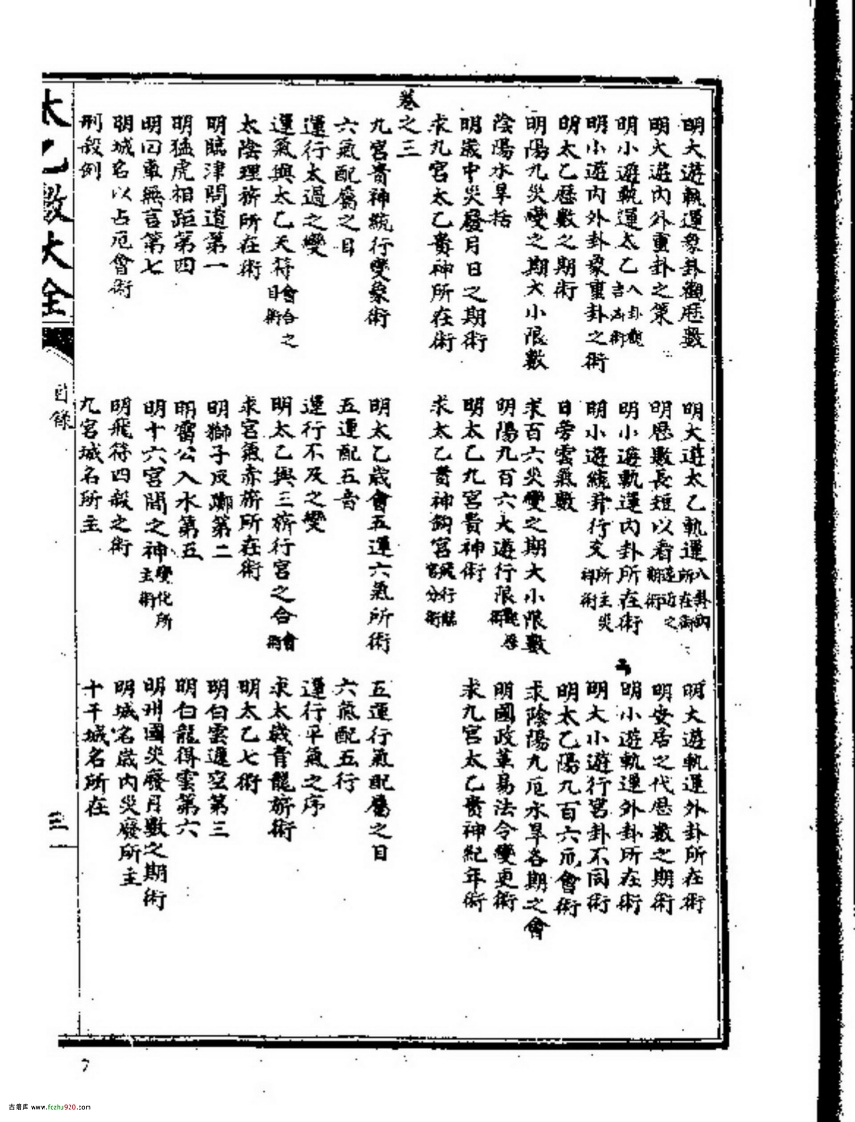 明大遊軌運象卦觀歷數 明大遊太乙軌運八卦內所在術 明大遊軌運外卦所在術
明大遊內外重卦之策 明歷數長短以看 明安居之代歷數之期術
明小遊軌運太乙八卦觀吉凶術 明小遊軌運內卦所在術 明小遊軌運外卦所在術
明小遊內外卦象重卦之術 明小遊繞卦行爻所主災祥術 明大小遊行宮卦不同術
明太乙歷數之期術 日旁雲氣數 明太乙陽九百六厄會術
明陽九災變之期大小限數 求百六災變之期大小限數 求陰陽九厄水旱各期之會
陰陽水旱括 明陽九百六大遊行限 明國政革易法令變更術
明歲中災廢月日之期術 明太乙九宮貴神術 求九宮太乙貴神紀年術
求九宮太乙貴神所在術 求太乙貴神鈎宮
卷之三
九宮貴神統行變象術 明太乙歲會五運六氣所術 五運行氣配屬之目
六氣配屬之目 五運配五音 六氣配五行
運行太過之變 運行不及之變 運行平氣之序
運氣與太乙天符會合之目術 明太乙與三旂行宮之合會術 求太歲青龍旂術
太陰理旂所在術 求宮氣赤旂所在術 明太乙七術
明臨津問道第一 明獅子反擲第二 明白雲還空第三
明猛虎相距第四 明雷公入水第五 明白龍得雲第六
明回車無言第七 明十六宮間之神變化所主術 明州國災廢月數之期術
明城名以占厄會術 明飛符四殺之術 明城名歲內災廢所主
刑殺例 九宮城名所主 十干城名所在
太乙數大全
目錄
三
7
古籍库 www.fczhu920.com